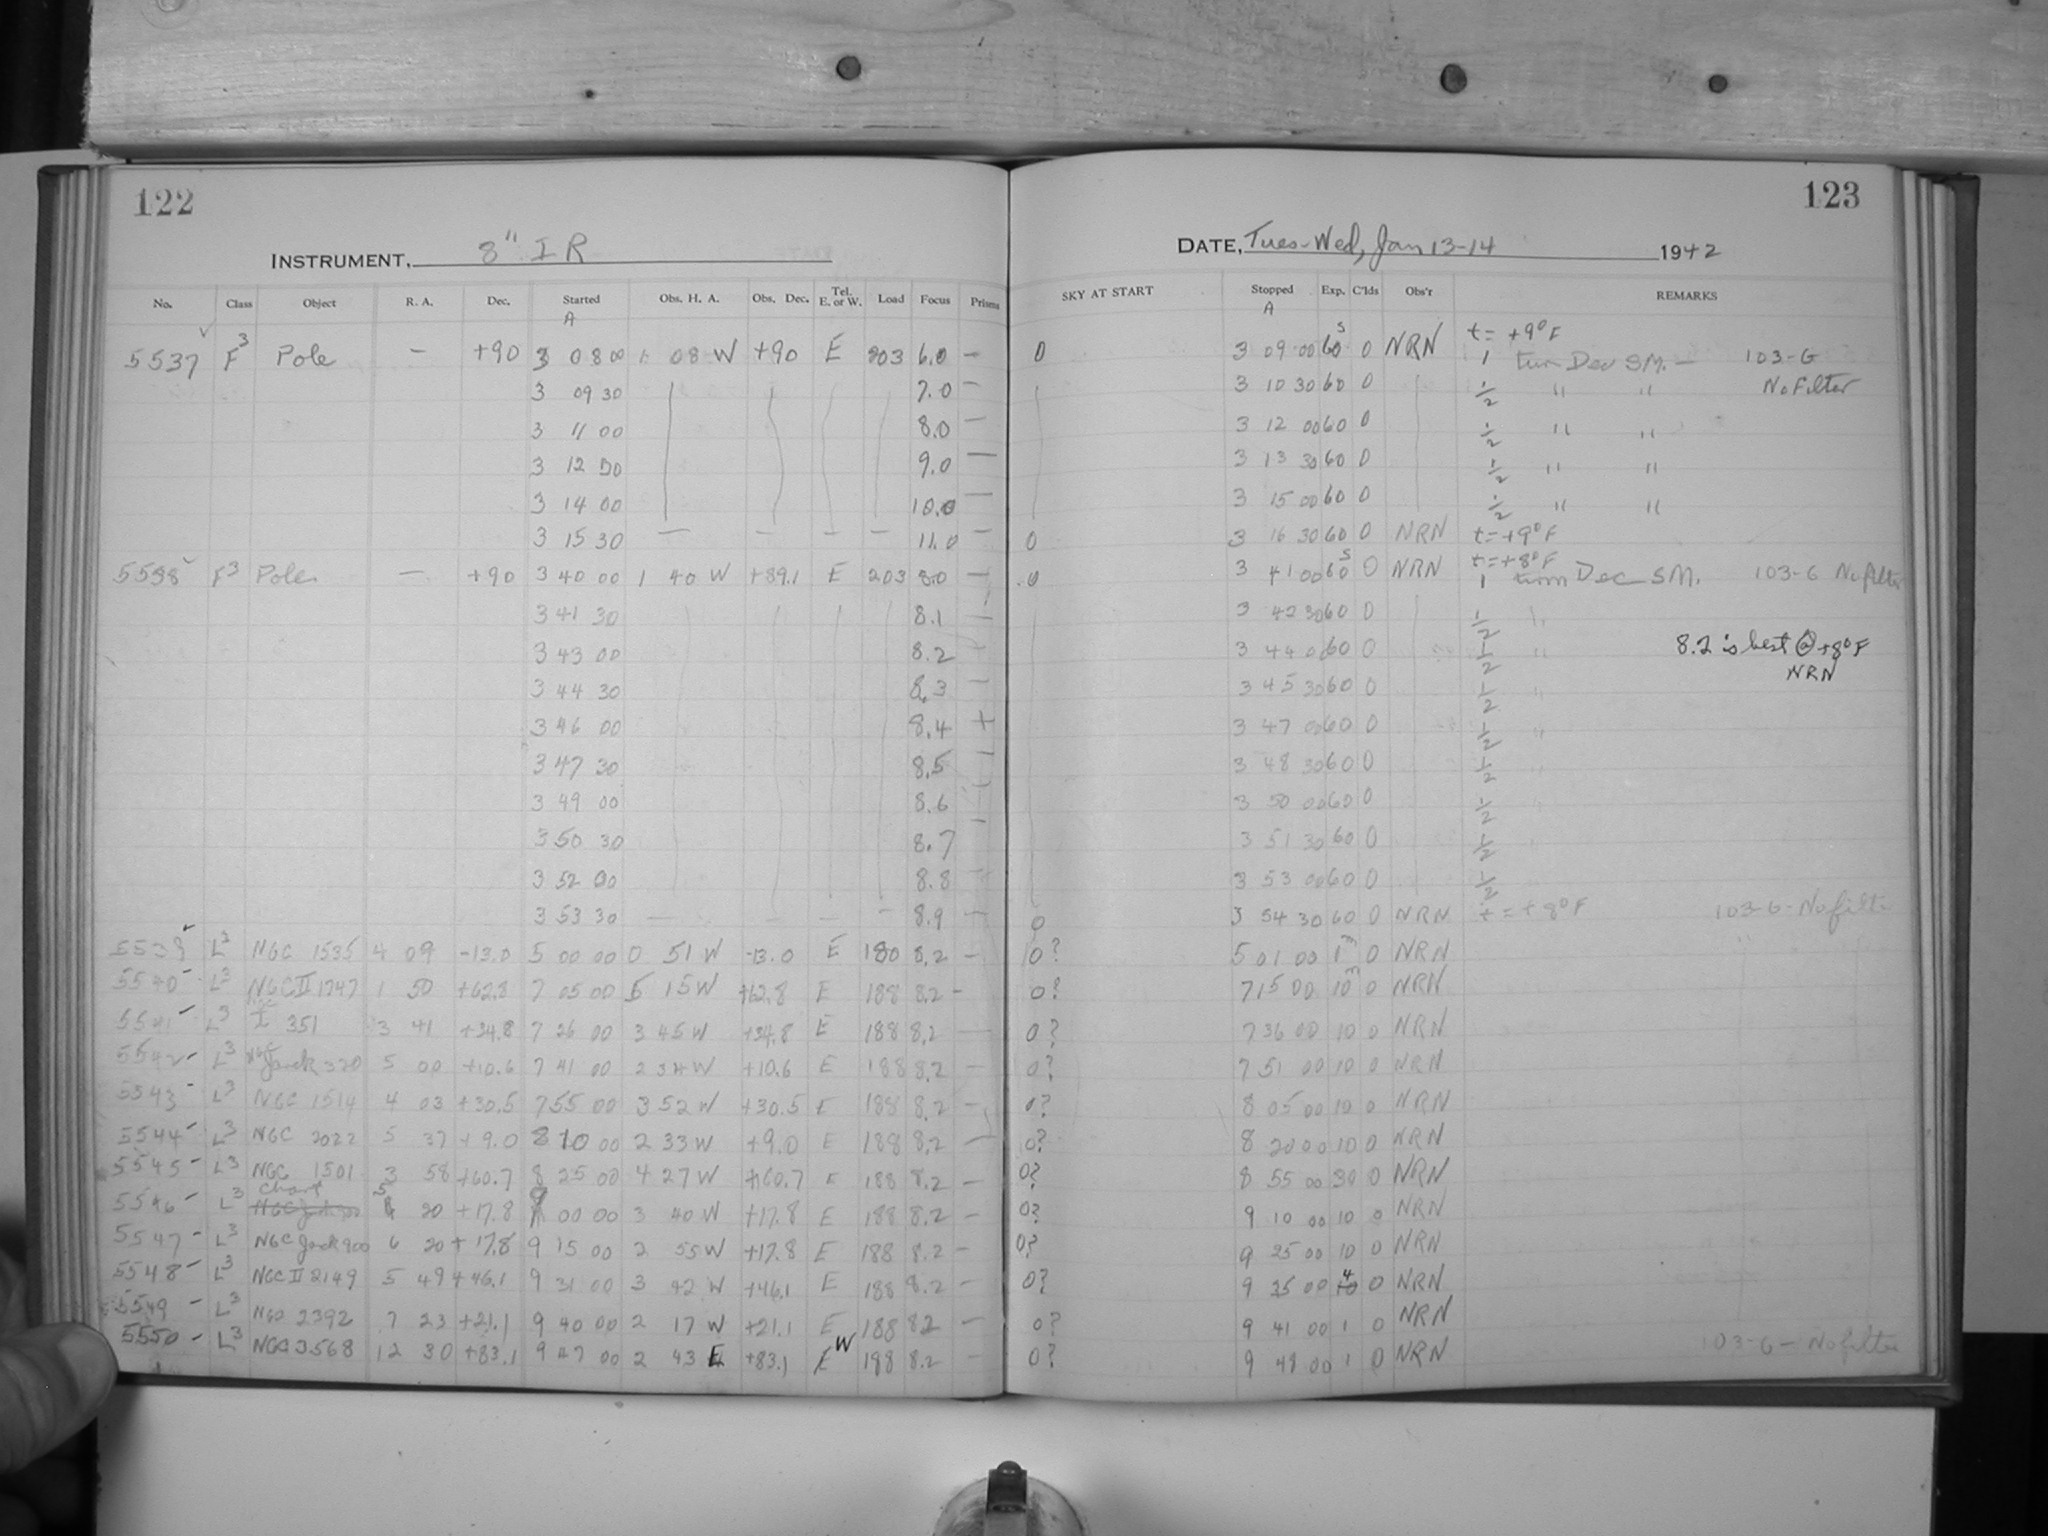 122
INSTRUMENT, 8" I R
No. Class Object R. A. Dec. Started Obs. H. A. Obs. Dec. Tel. E. or W. Load Focus Prisms
A
5537 F3 Pole — +90 3 08 00 1 08 W +90 E 203 6.0 —
3 09 30 7.0 —
3 11 00 8.0 —
3 12 30 9.0 —
3 14 00 10.0 —
3 15 30 — — — — 11.0 —
5538 F3 Pole — +90 3 40 00 1 40 W +89.1 E 203 8.0 —
3 41 30 8.1 —
3 43 00 8.2 —
3 44 30 8.3 —
3 46 00 8.4
3 47 30 8.5 —
3 49 00 8.6
3 50 30 8.7 —
3 52 00 8.8 —
3 53 30 — — — — 8.9 —
5539 L3 NGC 1535 4 09 -13.0 5 00 00 0 51 W -13.0 E 180 8.2 —
5540 L3 NGC II 1747 1 50 +62.8 7 05 00 5 15 W +62.8 E 188 8.2 —
5541 L3 I 351 3 41 +34.8 7 26 00 3 45 W +34.8 E 188 8.2 —
5542 L3 Jonck 320 5 00 +10.6 7 41 00 2 34 W +10.6 E 188 8.2 —
5543 L3 NGC 1514 4 03 +30.5 7 55 00 3 52 W +30.5 E 188 8.2 —
5544 L3 NGC 2022 5 37 +9.0 8 10 00 2 33 W +9.0 E 188 8.2 —
5545 L3 NGC 1501 3 58 +60.7 8 25 00 4 27 W +60.7 E 188 8.2 —
5546 L3 Chart 5 20 +17.8 9 00 00 3 40 W +17.8 E 188 8.2 —
5547 L3 NGC Jonck 900 6 20 +17.8 9 15 00 2 55 W +17.8 E 188 8.2 —
5548 L3 NGC II 2149 5 49 +46.1 9 31 00 3 42 W +46.1 E 188 8.2 —
5549 L3 NGC 2392 7 23 +21.1 9 40 00 2 17 W +21.1 E 188 8.2 —
5550 L3 NGC 3568 12 30 +83.1 9 47 00 2 43 E +83.1 W 188 8.2 —
123
DATE, Tues-Wed, Jan 13-14 1942
SKY AT START Stopped Exp. C'lds Obs'r REMARKS
A
0 3 09 00 60s 0 NRN t = +9°F
1 turn Dec S.M. — 103-G
3 10 30 60 0 1/2 " " No Filter
3 12 00 60 0 1/2 " "
3 13 30 60 0 1/2 " "
3 15 00 60 0 1/2 " "
0 3 16 30 60 0 NRN t = +9°F
0 3 41 00 60s 0 NRN t = +8°F
1 turn Dec S M. 103-G No filter
3 42 30 60 0 1/2 "
3 44 00 60 0 1/2 " 8.2 is best @ +8°F
NRN
3 45 30 60 0 1/2 "
3 47 00 60 0 1/2 "
3 48 30 60 0 1/2 "
3 50 00 60 0 1/2
3 51 30 60 0 1/2
3 53 00 60 0 1/2
0 3 54 30 60 0 NRN t = +8°F 103-G - No filter
0? 5 01 00 1m 0 NRN
0? 7 15 00 10m 0 NRN
0? 7 36 00 10 0 NRN
0? 7 51 00 10 0 NRN
0? 8 05 00 10 0 NRN
0? 8 20 00 10 0 NRN
0? 8 55 00 30 0 NRN
0? 9 10 00 10 0 NRN
0? 9 25 00 10 0 NRN
0? 9 35 00 4 0 NRN
0? 9 41 00 1 0 NRN
0? 9 48 00 1 0 NRN 103-G — No filter